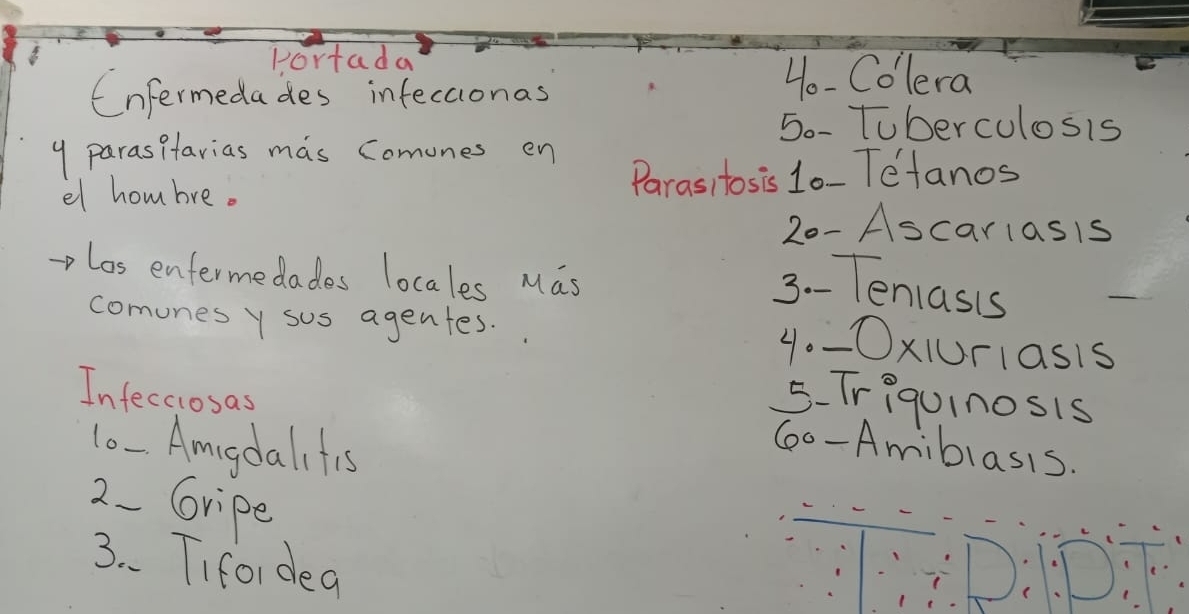 Portada
Enfermedades infeccionas
y parasitarias más comunes en
el hombre.
→ Las enfermedades locales más
comunes y sus agentes.
Infecciosas
1o- Amigdalitis
2- Gripe
3.- Tifoidea
4o- Cólera
5o- Tuberculosis
Parasitosis 1o- Tétanos
2o- Ascariasis
3.- Teniasis
4.- Oxiuriasis
5- Triquinosis
6o- Amibiasis.